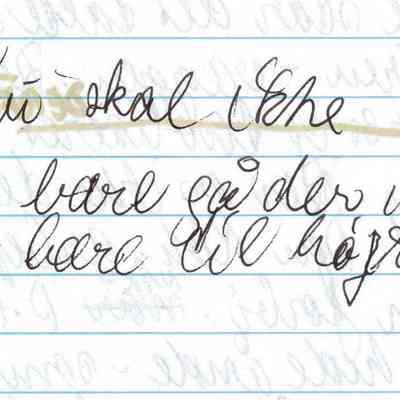 skal ikke
bare gå der
bare til høgr